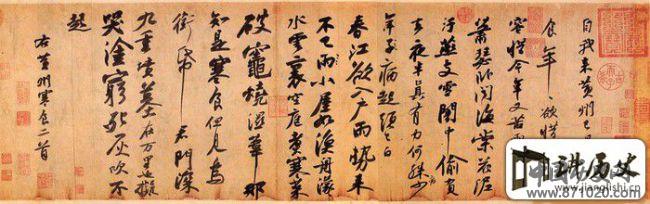 自我来黄州已
食年〻欲惜
容惜今年又苦
蕭瑟卧聞海棠花泥
汙燕支雪闇中偷負
去夜半真有力何殊少
年子病起頭已白
春江欲入户雨勢来
不已雨小屋如漁舟濛〻
水雲裏空庖煑寒菜
破竈燒濕葦那
知是寒食但見烏
銜帋君門深
九重墳墓在万里也擬
哭塗窮死灰吹不
起
右黄州寒食二首
讲历史
www.jianglishi.cn
www.871020.com